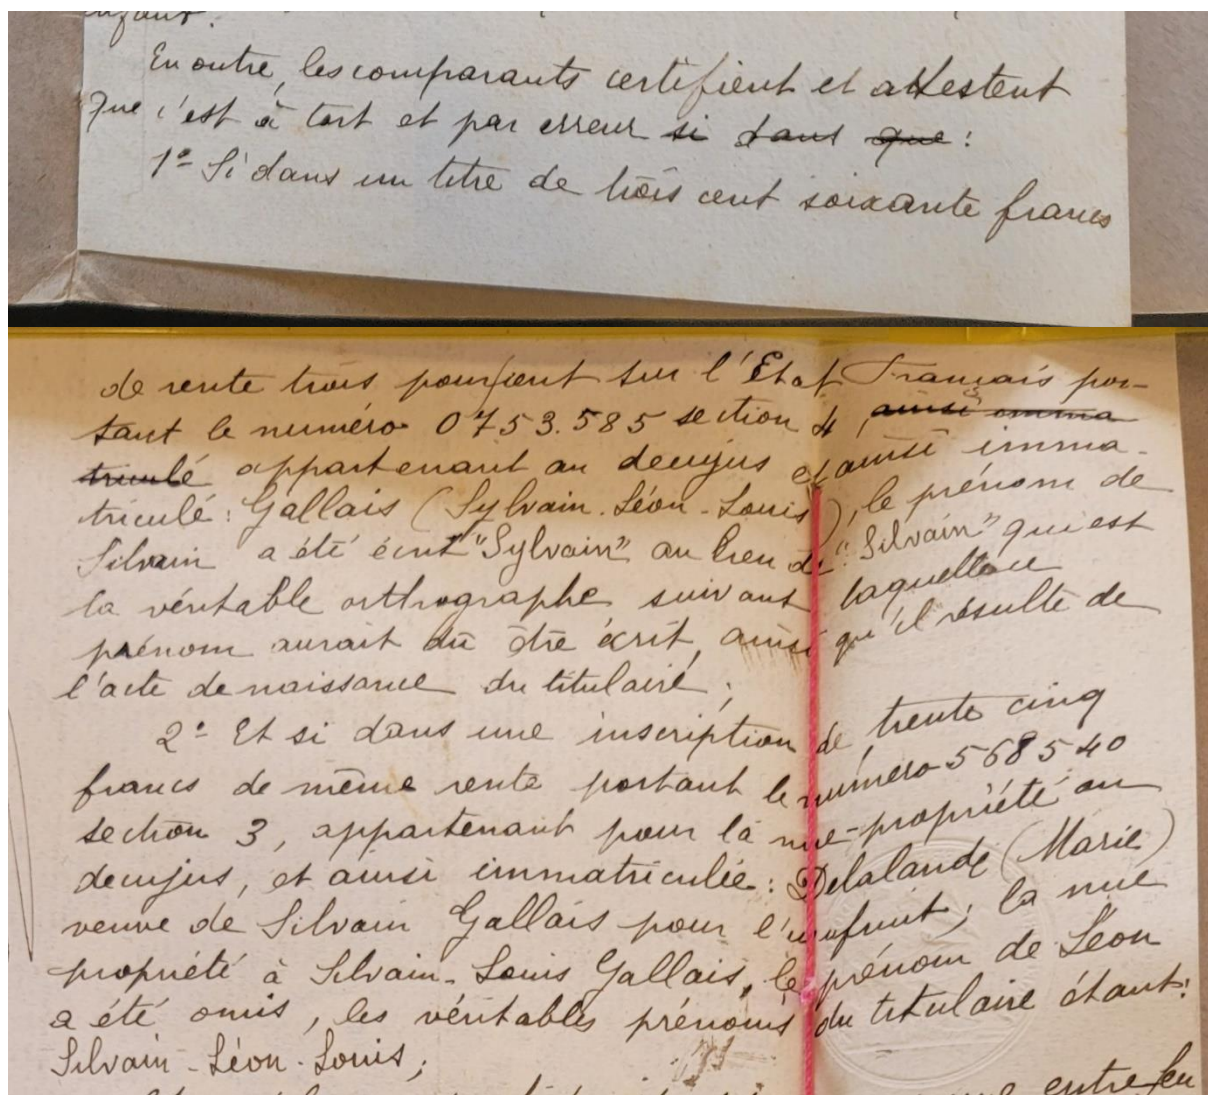 enfant.
En outre, les comparants certifient et attestent
que c'est à tort et par erreur si dans que :
1º Si dans un titre de trois cent soixante francs
de rente trois pour cent sur l'Etat Français por-
tant le numéro 0753.585 section 4, ainsi imma
triculé appartenant au decujus et ainsi imma-
triculé : Gallais (Sylvain-Léon-Louis), le prénom de
Silvain a été écrit "Sylvain" au lieu de "Silvain" qui est
la véritable orthographe suivant laquelle ce
prénom aurait dû être écrit, ainsi qu'il résulte de
l'acte de naissance du titulaire ;
2º Et si dans une inscription de trente cinq
francs de même rente portant le numéro 568540
section 3, appartenant pour la nue-propriété au
decujus, et ainsi immatriculée : Delalande (Marie)
veuve de Silvain Gallais pour l'usufruit ; la nue
propriété à Silvain-Louis Gallais, le prénom de Léon
a été omis, les véritables prénoms du titulaire étant :
Silvain-Léon-Louis ;
entre feu